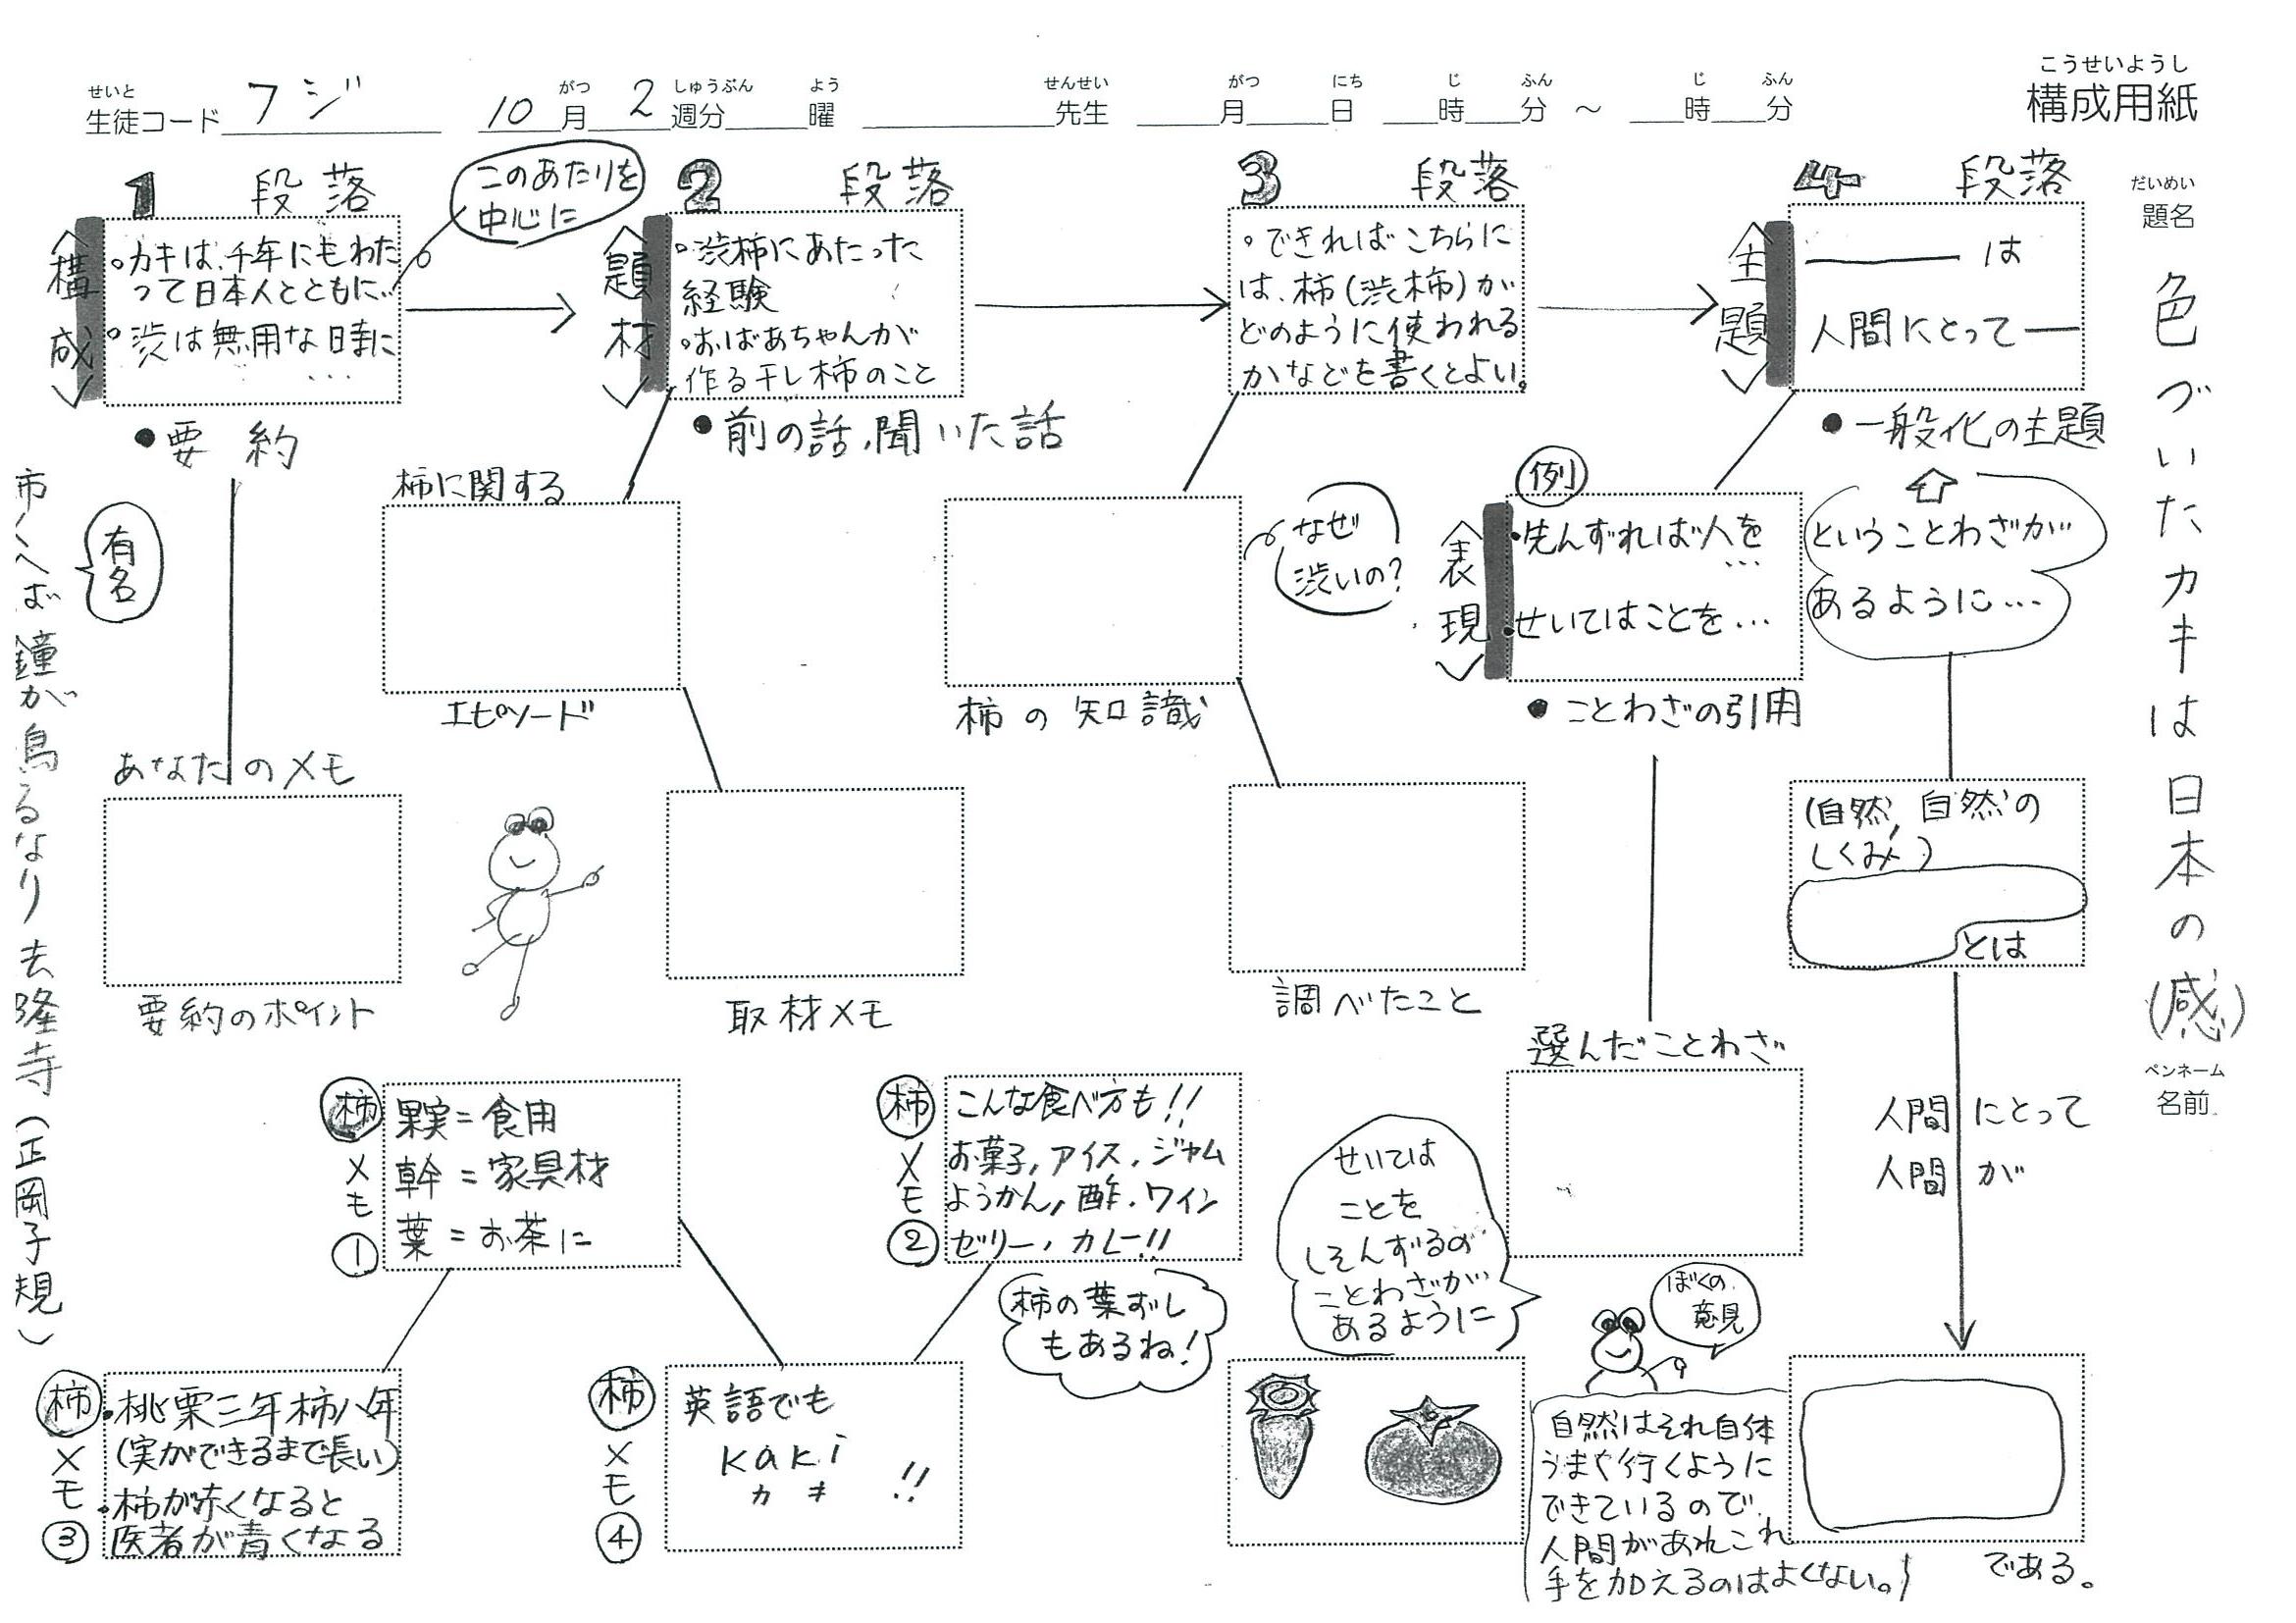 こうせいようし
構成用紙
せいと
生徒コード フジ
がつ しゅうぶん よう
10月 2週分 曜
せんせい
先生
がつ にち じ ふん じ ふん
月 日 時 分 ～ 時 分
だいめい
題名
色づいたカキは日本の(感)
ペンネーム
名前
1 段落
〈構成〉
◦カキは、千年にもわた
って日本人とともに…
◦渋は無用な時に
…
このあたりを
中心に
●要約
2 段落
〈題材〉
◦渋柿にあたった
経験
◦おばあちゃんが
作る干し柿のこと
●前の話、聞いた話
3 段落
◦できればこちらに
は、柿(渋柿)が
どのように使われる
かなどを書くとよい。
4 段落
〈主題〉
――― は
人間にとって ―
●一般化の主題
柿に関する
エピソード
なぜ
渋いの?
柿の知識
例
〈表現〉
・先んずれば人を
…
・せいてはことを…
●ことわざの引用
ということわざが
あるように…
有名
柿くへば 鐘が鳥るなり 去隆寺(正岡子規)
あなたのメモ
要約のポイント
取材メモ
調べたこと
(自然、自然の
しくみ)
とは
選んだことわざ
人間にとって
人間が
柿メモ①
果実=食用
幹=家具材
葉=お茶に
柿メモ②
こんな食べ方も!!
お菓子、アイス、ジャム
ようかん、酢、ワイン
ゼリー、カレー!!
柿の葉ずし
もあるね!
せいては
ことを
しそんずるの
ことわざが
あるように
ぼくの
意見
柿メモ③
・桃栗三年柿八年
(実ができるまで長い)
・柿が赤くなると
医者が青くなる
柿メモ④
英語でも
kaki
カキ !!
自然はそれ自体
うまく行くように
できているので、
人間があれこれ
手を加えるのはよくない。
である。